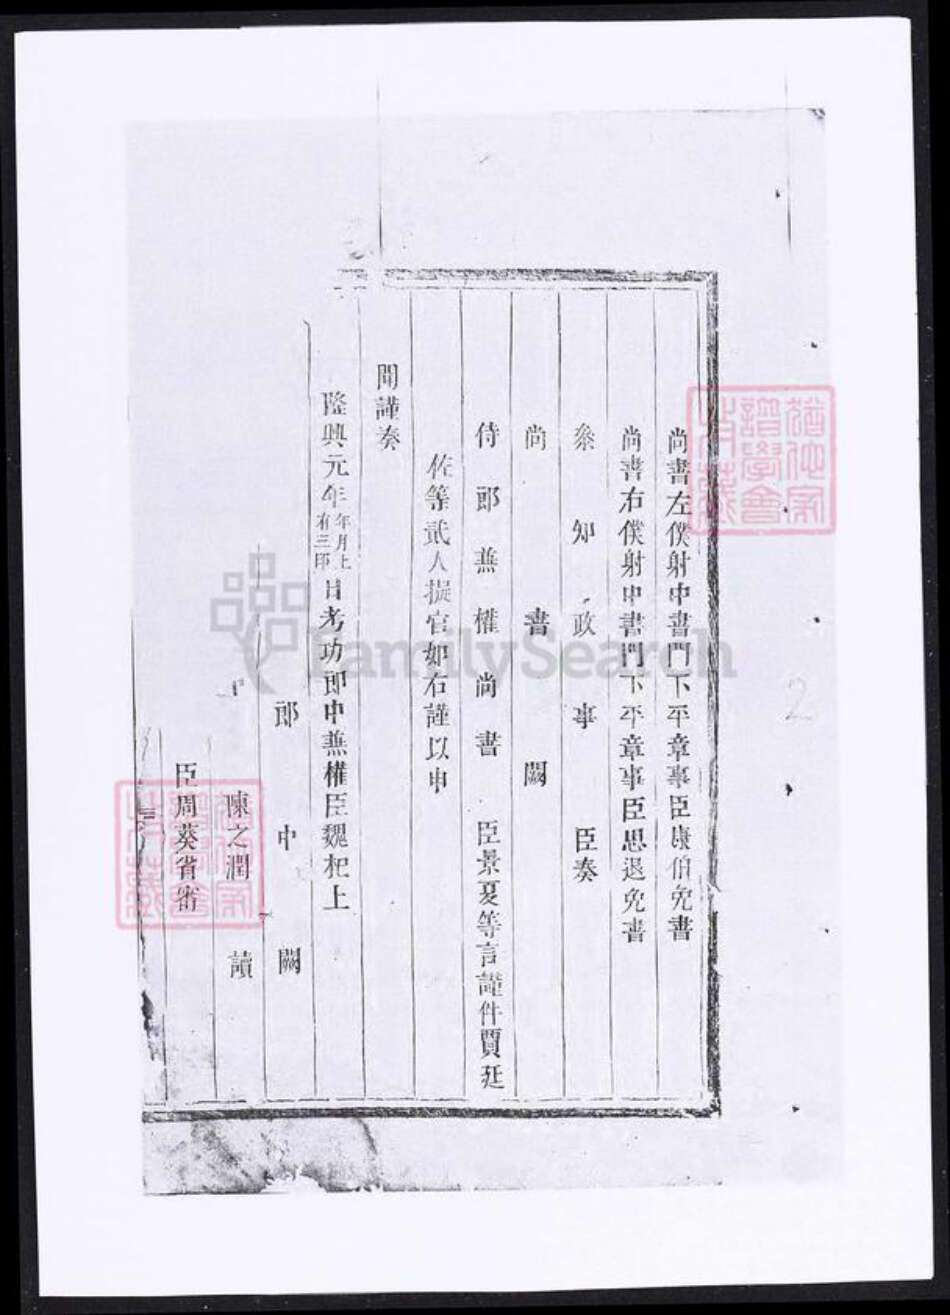 尚書左僕射中書門下平章事臣康伯免書
尚書右僕射中書門下平章事臣思退免書
叅知政事臣奏
尚書闕
侍郎兼權尚書臣景夏等言謹件賈廷
佐等貳人擬官如右謹以申
聞謹奏
隆興元年年月上有三印日考功郎中兼權臣魏杞上
郎中闕
陳之潤讀
臣周葵省審
FamilySearch
2